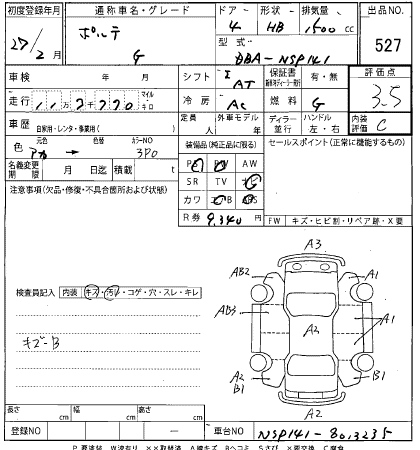 初度登録年月 通称車名・グレード ドア・形状・排気量 出品NO.
27/2月 ポルテ G 4 HB 1500 cc 527
型式 DBA-NSP141
車検 年 月 シフト I AT 保証書 有・無 評価点
走行 11万2千770 マイル・キロ 冷房 AC 燃料 G 3.5
車歴 自家用・レンタ・事業用( ) 定員 人 外車モデル 年 ディーラー 並行 ハンドル 左・右 内装評価 C
色 元色 アカ 色替 カラーNO 3P0 装備品(純正品に限る) セールスポイント(正常に機能するもの)
名義変更期限 月 日迄 積載 t PS PW AW
注意事項(欠品・修復・不具合箇所および状態) SR TV
カワ ABS
R券 9,340 円
FW キズ・ヒビ割・リペア跡・X要
検査員記入 内装 キズ・汚レ・コゲ・穴・スレ・キレ
キズ-B
A3
AB2 A1
AB3 A2 A1
A2 B1 B1
A2
長さ cm 幅 cm 高さ cm
登録NO ー 車台NO NSP141-8013235
P要塗装 W波有り ××取替済 A線キズ Bヘコミ Sさび ×要交換 C腐食